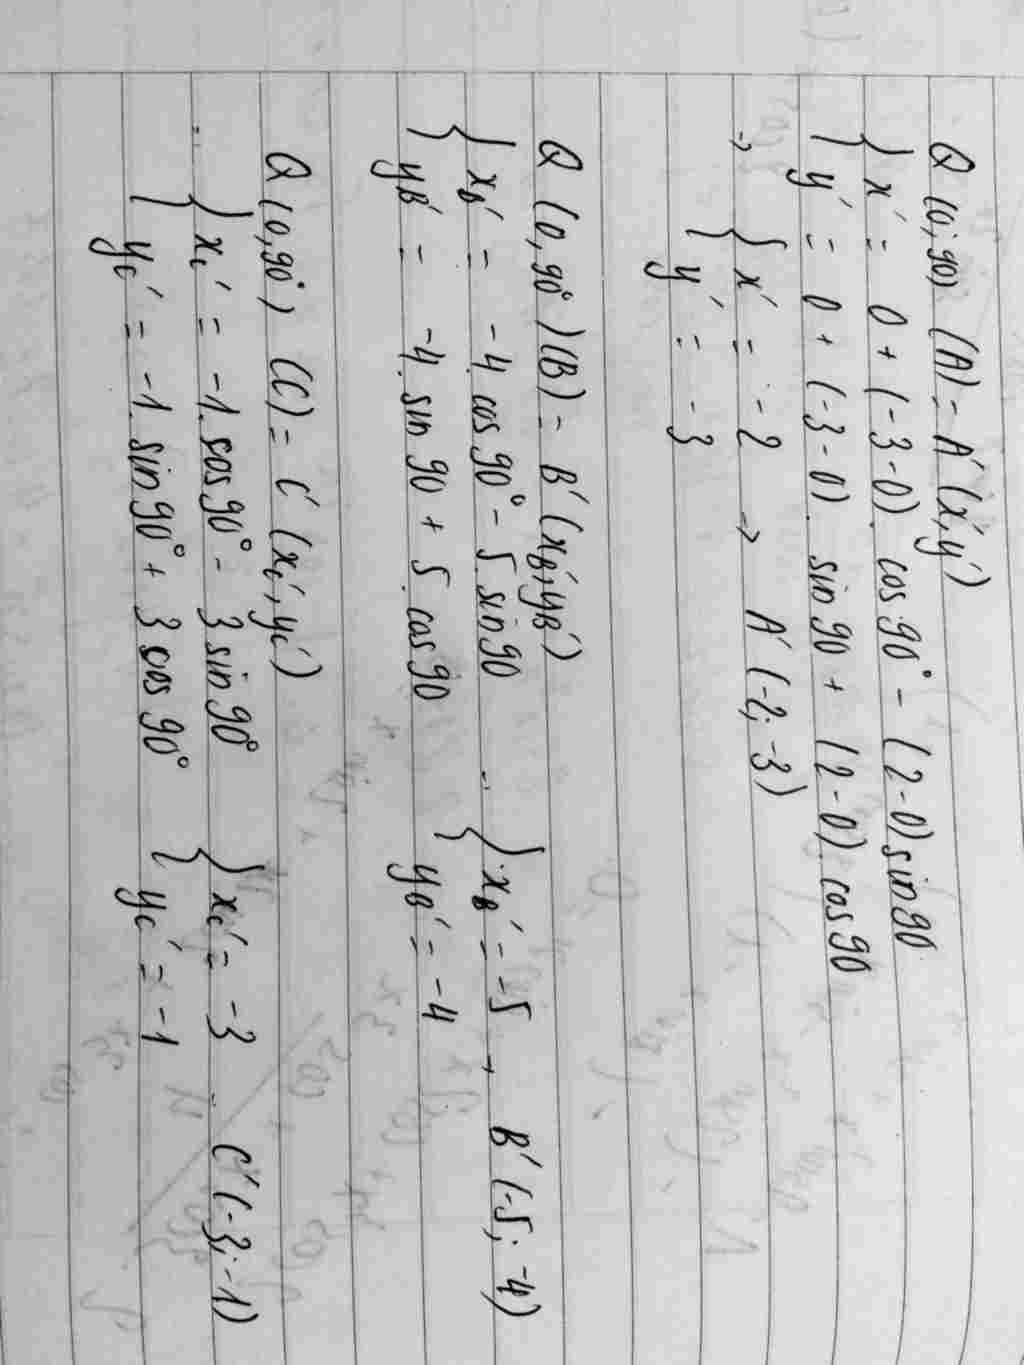 Q (0; 90) (A) = A' (x', y')
{ x' = 0 + (-3-0). cos 90° - (2-0) sin 90
{ y' = 0 + (-3-0). sin 90 + (2-0). cos 90
→ { x' = -2 → A' (-2; -3)
{ y' = -3
Q (0, 90°) (B) = B' (xB', yB')
{ xB' = -4 cos 90° - 5 sin 90 .. { xB' = -5 → B' (-5; -4)
{ yB' = -4. sin 90 + 5. cos 90 { yB' = -4
Q (0, 90°) (C) = C' (xC', yC')
.. { xC' = -1. cos 90° - 3 sin 90° { xC' = -3 .. C' (-3; -1)
{ yC' = -1. sin 90° + 3 cos 90° { yC' = -1